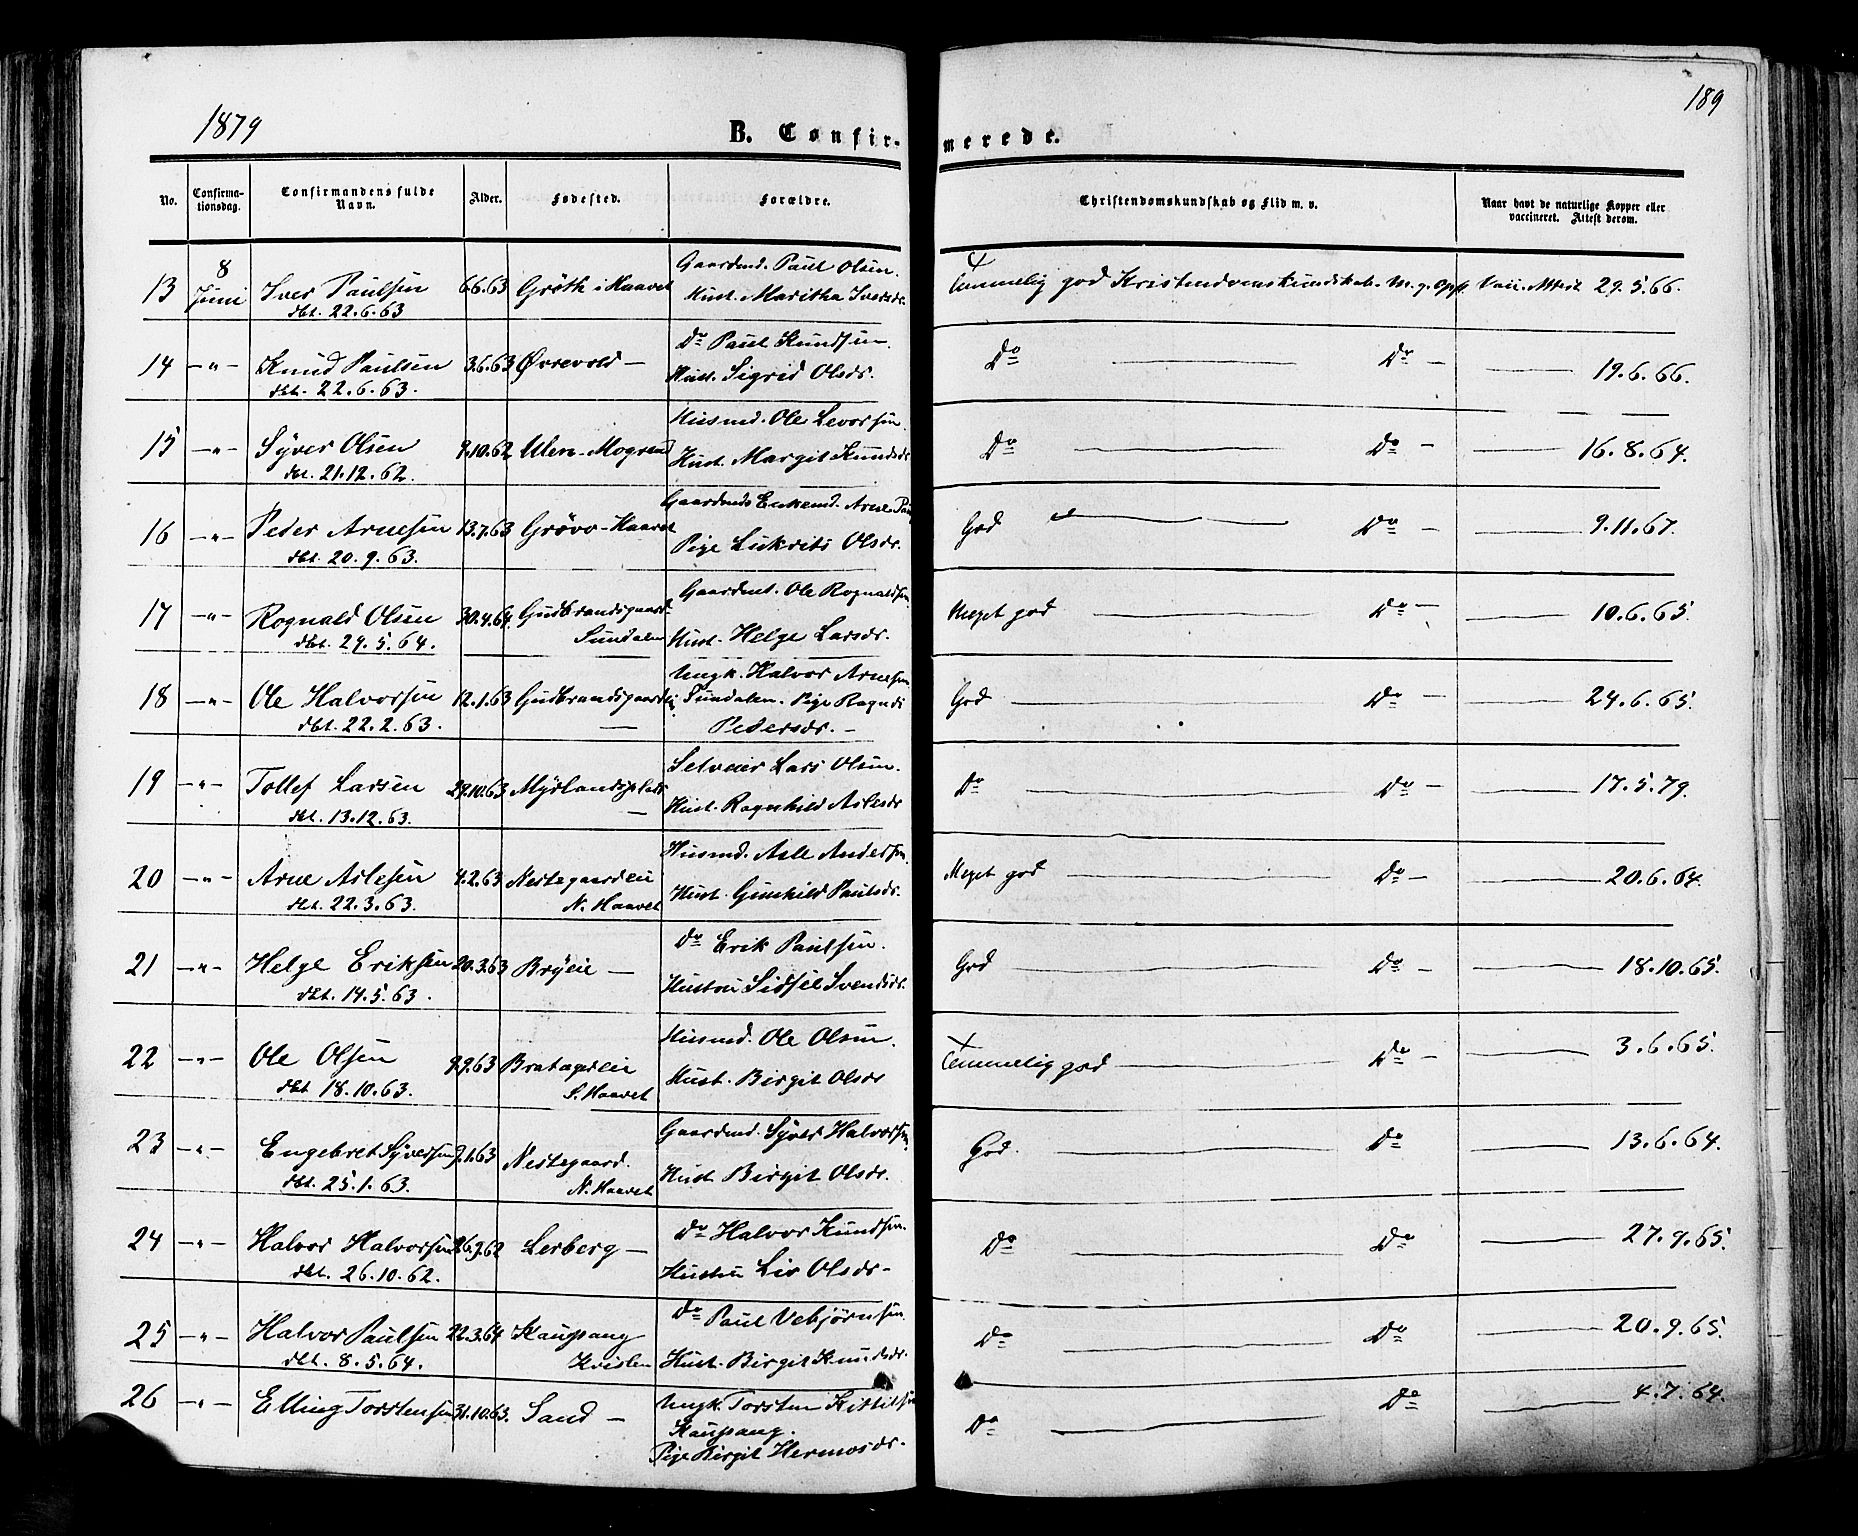 1879
189
B. Confir-
merede.
No. Confirma-tionsdag. Confirmandens fulde Navn. Alder. Fødested. Forældre. Christendomskundskab og Flid m. v. Naar havt de naturlige Kopper eller vaccineret. Attest derom.
13 8 Juni Iver Paulsen 6.6.63 Gröth i Haavet Gaardmd. Paul Olsen. Temmelig god Kristendomskundskab. M. g. Opf. Vacc. Attest 29.5.66.
dbt. 22.6.63 Hust. Maritha Iversdr.
14 -"- Knud Paulsen 3.6.63 Øvrevold — Do Paul Knudsen. Do — Do — 19.6.66.
dbt. 22.6.63. Hust. Sigrid Olsdr.
15 -"- Syver Olsen 9.10.62 Ulen - Mogrend Husmd. Ole Levorsen Do — Do — 16.8.64.
dbt. 21.12.62. Hust. Margit Knudsdr.
16 -"- Peder Arnesen 13.7.63 Grövo - Haavet Gaardmds Enkemd. Arne God — Do — 9.11.67.
dbt. 20.9.63. Pige Olsdr.
17 -"- Rognald Olsen 30.4.64 Gudbrandsgaard- Gaardmd. Ole Rognaldsen. Meget god — Do — 10.6.65.
dbt. 29.5.64. Sundalen Hust. Helge Larsdr.
18 -"- Ole Halvorsen 12.1.63 Gudbrandsgaardei Ungk. Halvor Arnesen God — Do — 24.6.65.
dbt. 22.2.63. — Sundalen. Pige Ragndi
Pedersdr. -
19 -"- Tollef Larsen 29.10.63 Myrlandsplads Selveier Lars Olsen. Do — Do — 17.5.79.
dbt. 13.12.63. — Hust. Ragnhild Aslesdr
20 -"- Arne Aslesen 4.2.63 Nestegaardeie Husmd. Asle Andersen. Meget god — Do — 20.6.64.
dbt. 22.3.63. N. Haavet Hust. Gunhild Paulsdr.
21 -"- Helge Eriksen 20.3.63 Bryeie — Do Erik Paulsen. God — Do — 18.10.65.
dbt. 14.5.63. Hustru Sidsel Svendsdr.
22 -"- Ole Olsen 9.9.63 Bratageeie Husmd. Ole Olsen. Temmelig god — Do — 3.6.65.
dbt 18.10.63. S. Haavet Hust. Birgit Olsdr
23 -"- Engebret Syversen 9.1.63 Nestegaard. Gaardmd. Syver Halvorsen God. Do 13.6.64.
dbt. 25.1.63. N. Haavet Hust Birgit Olsdr.
24 -"- Halvor Halvorsen 26.9.62 Lerberg — Do Halvor Knudsen. Do — Do — 27.9.65.
dbt. 26.10.62. Hustru Liv Olsdr-
25 -"- Halvor Paulsen 22.3.64 Kaupang Do Paul Vebjørnsen Do — Do — 20.9.65.
dbt. 8.5.64. Kvislen Hust. Birgit Knudsdr.
26 -"- Elling Torstensen 31.10.63. Sand — Ungk. Torsten Kittilsen Do — Do — 4.7.64.
Kaupang.
Pige Birgit Hermosdr.